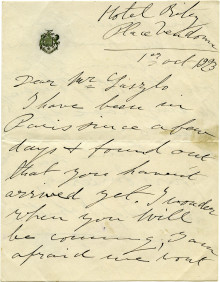 Hotel Ritz
Place Vendome
1st Oct 1923
Dear Mr Laszlo
I have been in
Paris since a few
days & found out
that you havent
arrived yet. I wonder
when you will
be coming, I am
afraid we wont